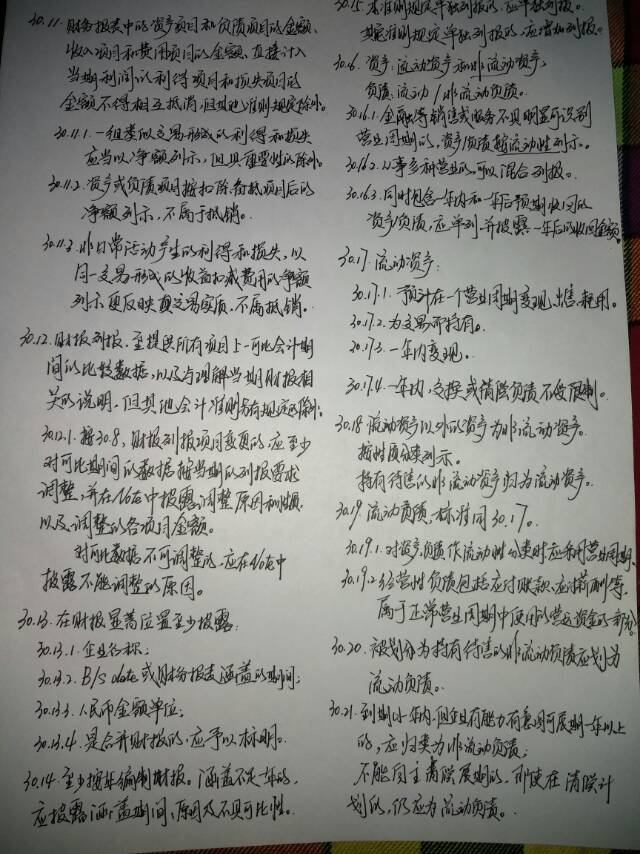 30.11. 财务报表中的资产项目和负债项目的金额、
收入项目和费用项目的金额、直接计入
当期利润的利得项目和损失项目的
金额不得相互抵消,但其他准则规定除外。
30.11.1. 一组类似交易形成的利得和损失
应当以净额列示,但具重要性的除外。
30.11.2. 资产或负债项目按扣除备抵项目后的
净额列示,不属于抵销。
30.11.3. 非日常活动产生的利得和损失,以
同一交易形成的收益扣减费用的净额
列示更反映真交易实质,不属抵销。
30.12. 财报列报,至提供所有项目上一可比会计期
间的比较数据,以及与理解当期财报相
关的说明,但其他会计准则另有规定的除外。
30.12.1. 按30.8,财报列报项目变更的,应至少
对可比期间的数据按当期的列报要求
调整,并在Note中披露调整原因和性质,
以及调整的各项目金额。
对可比数据不可调整的,应在Note中
披露不能调整的原因。
30.13. 在财报显著位置至少披露:
30.13.1 企业名称;
30.13.2. B/S date或财务报表涵盖的期间;
30.13.3. 人民币金额单位;
30.13.4. 是合并财报的,应予以标明。
30.14. 至少按年编制财报。涵盖不足一年的,
应披露涵盖期间、原因及不具可比性。
30.15. 本准则规定单独列报的,应单独列报。
其他准则规定单独列报的,应增加列报。
30.16. 资产:流动资产和非流动资产;
负债:流动/非流动负债。
30.16.1. 金融等销售或服务不具明显可识别
营业周期的,资产/负债按流动性列示。
30.16.2. 从事多种营业的,可以混合列报。
30.16.3. 同时包含一年内和一年后预期收回的
资产/负债,应单列并披露一年后的收回金额。
30.17. 流动资产:
30.17.1. 预计在一个营业周期变现、出售、耗用。
30.17.2. 为交易而持有。
30.17.3. 一年内变现。
30.17.4. 一年内,交换或清偿负债不受限制。
30.18 流动资产以外的资产为非流动资产。
按性质分类列示。
持有待售的非流动资产归为流动资产。
30.19. 流动负债,标准同30.17。
30.19.1. 对资产负债作流动性分类时应采用营业周期。
30.19.2 经营性负债包括应付账款、应付薪酬等,
属于正常营业周期中使用的营运资金的一部分。
30.20. 被划分为持有待售的非流动负债应划为
流动负债。
30.21. 到期1年内,但企业有能力有意图可展期一年以上
的,应归类为非流动负债;
不能自主清偿展期的,即使在清偿计
划的,仍应为流动负债。